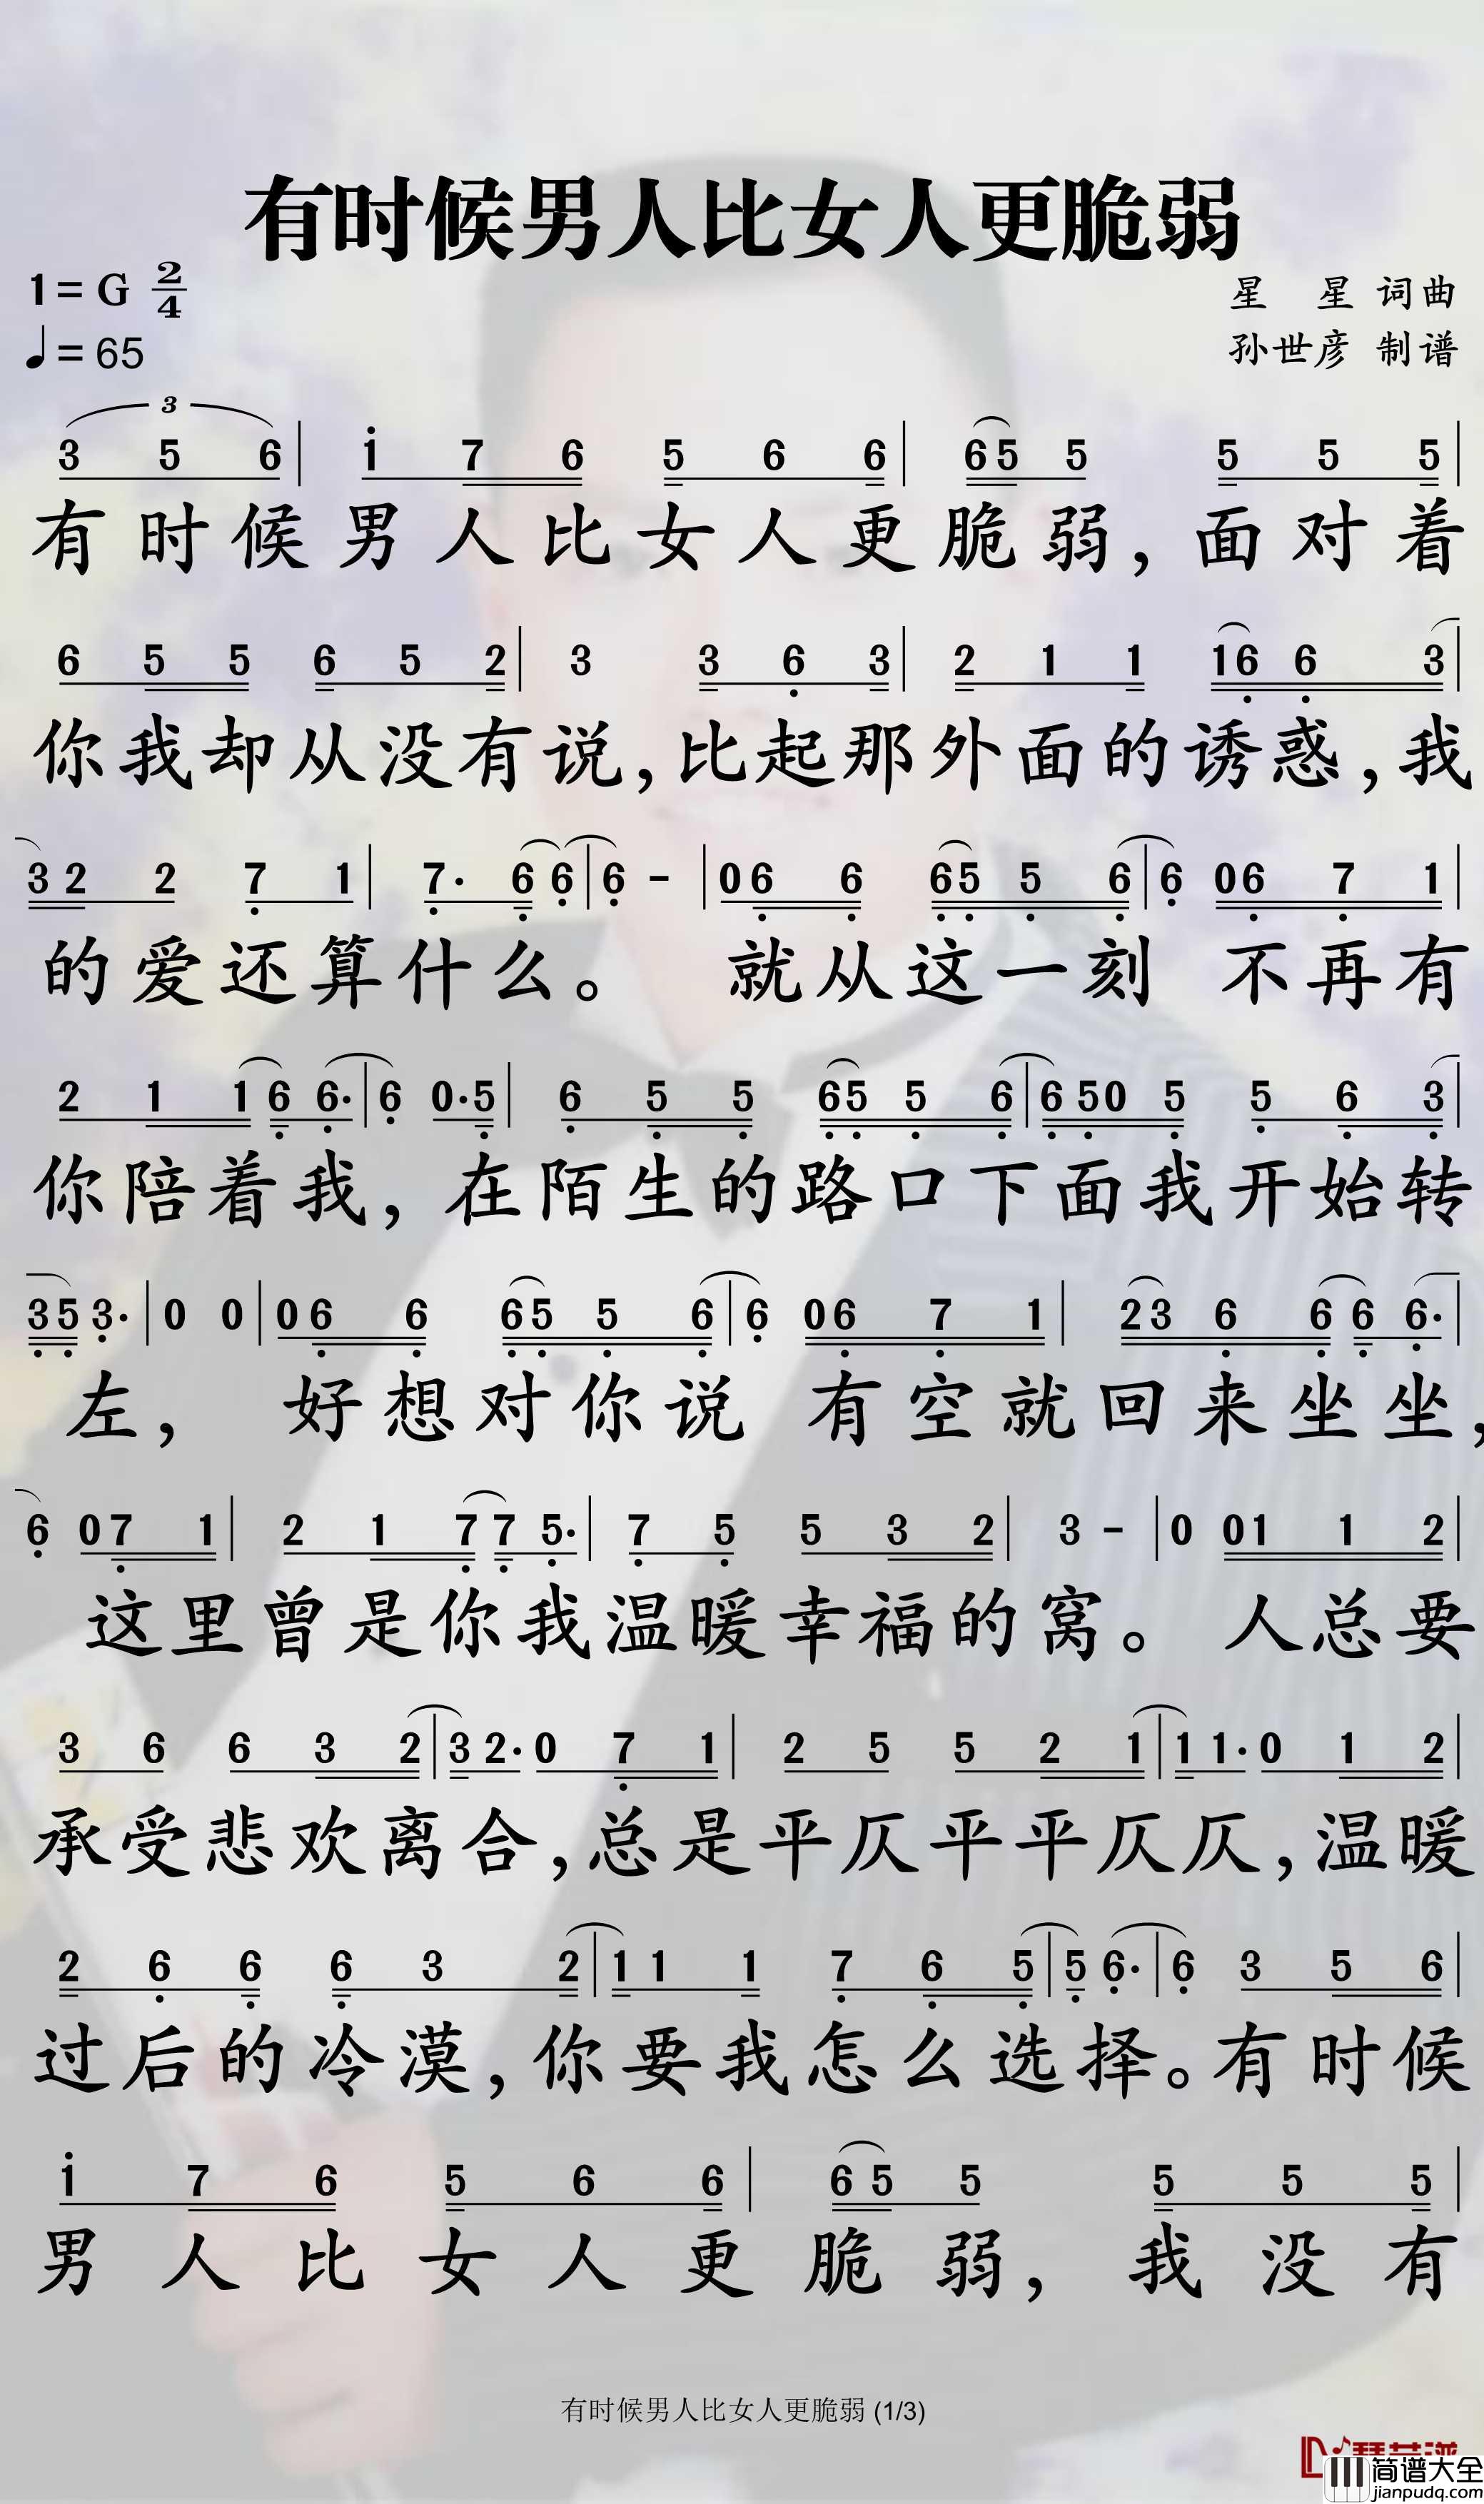 有时候男人比女人更脆弱
1= G 2/4
星 星 词曲
♩= 65
孙世彦 制谱
3
3 5 6 | 1 7 6 5 6 6 | 6 5 5 5 5 5 |
有时候男人比女人更脆弱,面对着
6 5 5 6 5 2 | 3 3 6 3 | 2 1 1 1 6 6 3 |
你我却从没有说,比起那外面的诱惑,我
3 2 2 7 1 | 7· 6 6 | 6 - | 0 6 6 6 5 5 6 | 6 0 6 7 1 |
的爱还算什么。就从这一刻 不再有
2 1 1 6 6· | 6 0· 5 | 6 5 5 6 5 5 6 | 6 5 0 5 5 6 3 |
你陪着我,在陌生的路口下面我开始转
3 5 3· | 0 0 | 0 6 6 6 5 5 6 | 6 0 6 7 1 | 2 3 6 6 6 6·
左, 好想对你说 有空就回来坐坐,
6 0 7 1 | 2 1 7 7 5· | 7 5 5 3 2 | 3 - | 0 0 1 1 2 |
这里曾是你我温暖幸福的窝。人总要
3 6 6 3 2 | 3 2· 0 7 1 | 2 5 5 2 1 | 1 1· 0 1 2 |
承受悲欢离合,总是平仄平平仄仄,温暖
2 6 6 6 3 2 | 1 1 1 7 6 5 | 5 6· | 6 3 5 6 |
过后的冷漠,你要我怎么选择。有时候
1 7 6 5 6 6 | 6 5 5 5 5 5 |
男人比女人更脆弱,我没有
有时候男人比女人更脆弱 (1/3)
简谱大全
jianpudq.com